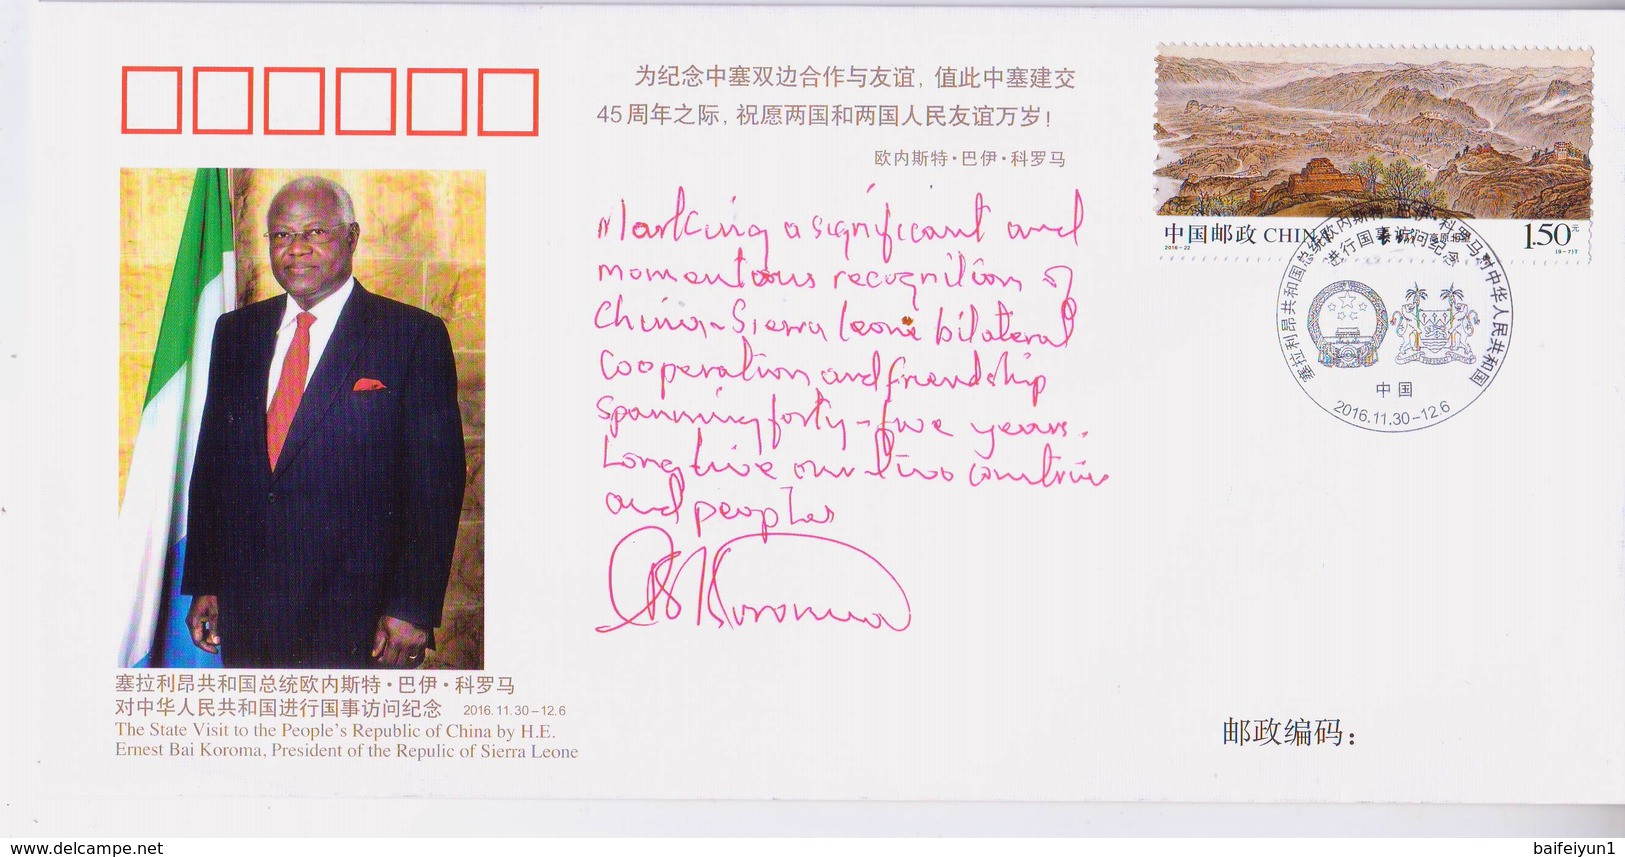 为纪念中塞双边合作与友谊，值此中塞建交
45周年之际，祝愿两国和两国人民友谊万岁！
欧内斯特·巴伊·科罗马
Marking a significant and
momentous recognition of
China-Sierra Leone bilateral
cooperation and friendship
spanning forty-five years.
Long live our two countries
and peoples
Koroma
中国邮政 CHINA
2016-22
1.50元
(9-7)T
塞拉利昂共和国总统欧内斯特·巴伊·科罗马对中华人民共和国
进行国事访问纪念
中国
2016.11.30-12.6
塞拉利昂共和国总统欧内斯特·巴伊·科罗马
对中华人民共和国进行国事访问纪念 2016.11.30-12.6
The State Visit to the People's Republic of China by H.E.
Ernest Bai Koroma, President of the Repulic of Sierra Leone
邮政编码：
www.delcampe.net
baifeiyun1